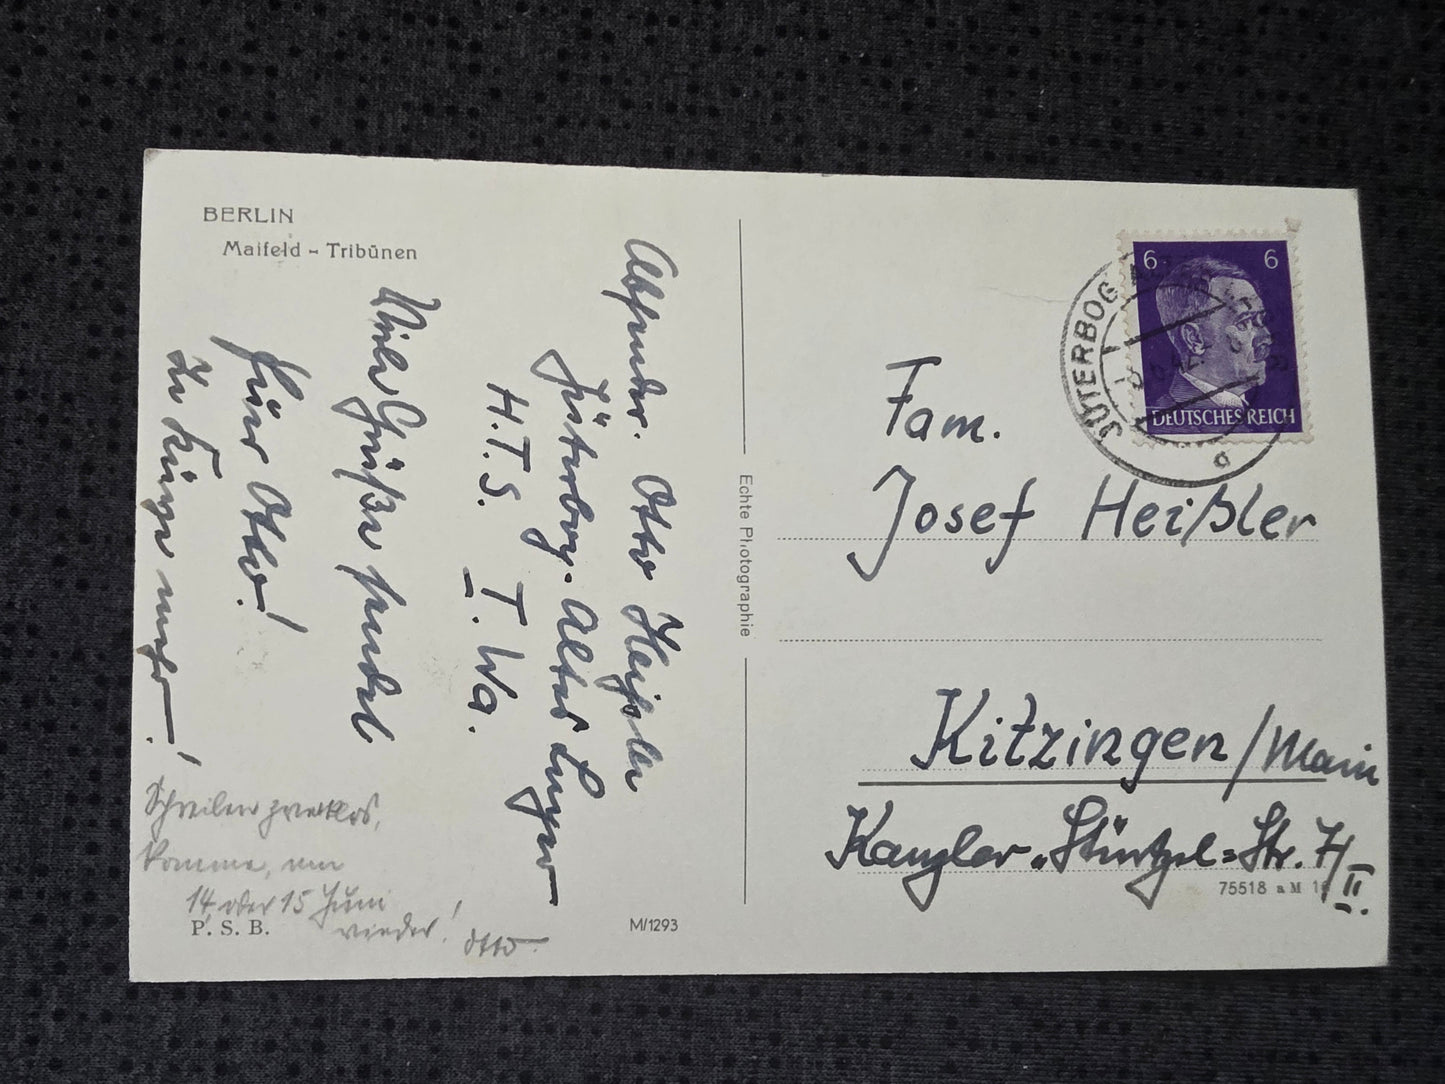 BERLIN
Maifeld - Tribünen
Absender. Otto Heißler
Jüterbog. Altes Lager
H.T.S. I. Wa.
Viele Grüße sendet
für Otto!
In Kürze mehr!
Schreiben zwecklos,
komme, am
14 oder 15 Juni
wieder! Otto
P. S. B.
M/1293
Echte Photographie
6 6
DEUTSCHES REICH
JÜTERBOG
Fam.
Josef Heißler
Kitzingen/Main
Kanzler-Stürtzel=Str. 7/II.
75518 a M